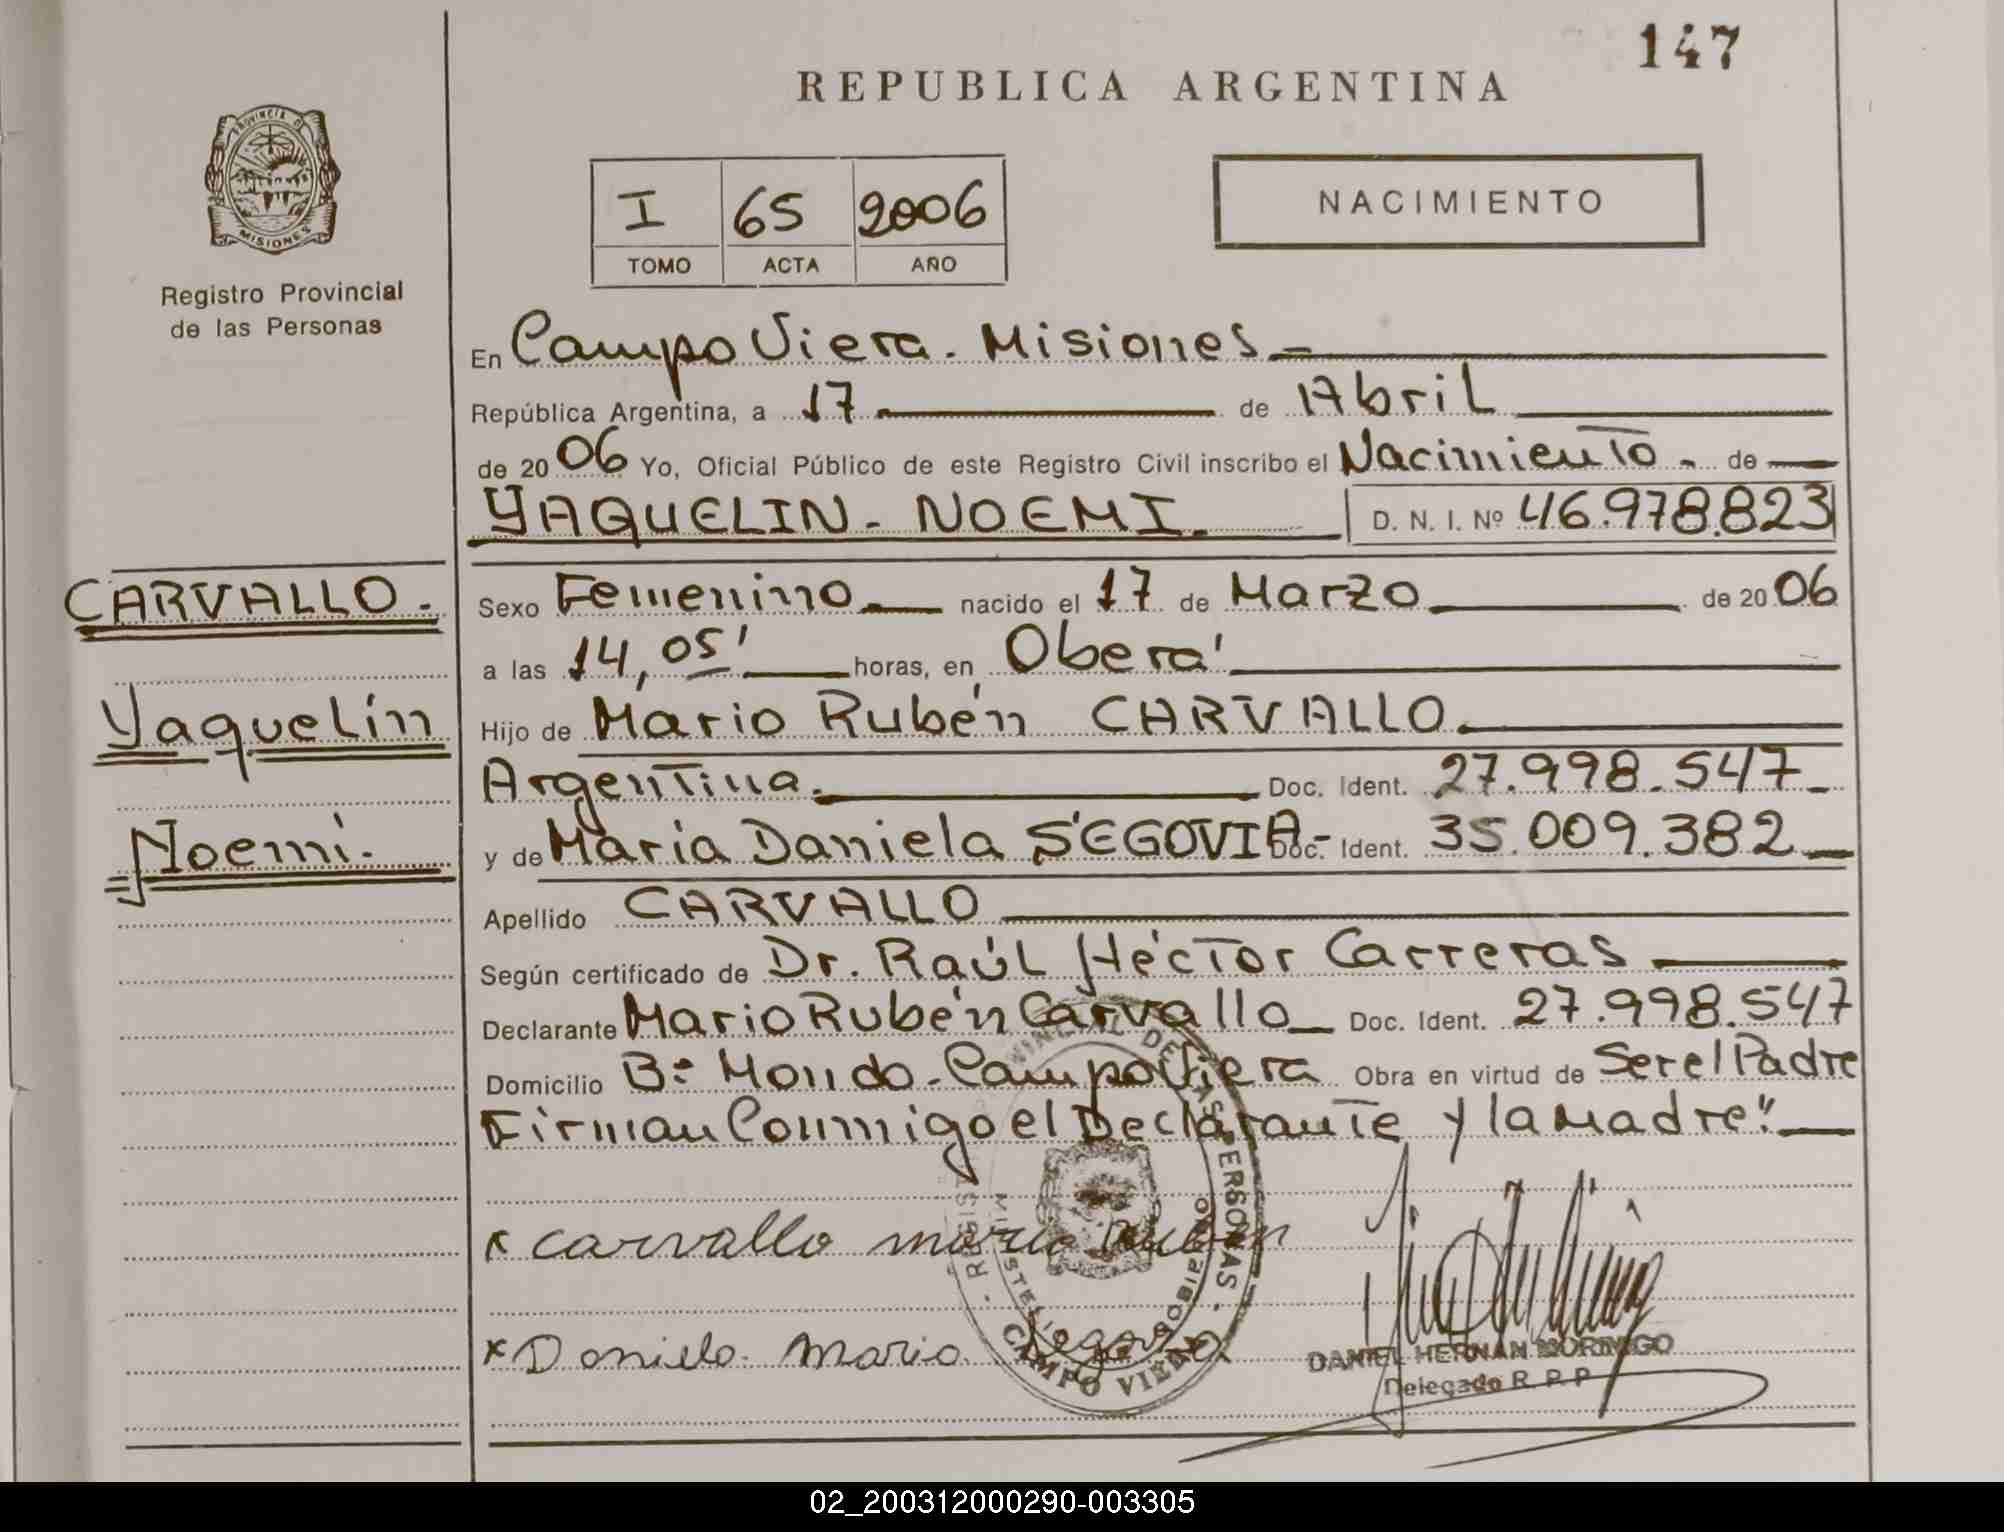 147
REPUBLICA ARGENTINA
PROVINCIA DE
MISIONES
Registro Provincial
de las Personas
I 65 2006
TOMO ACTA AÑO
NACIMIENTO
En Campo Viera. Misiones
República Argentina, a 17 de Abril
de 2006 Yo, Oficial Público de este Registro Civil inscribo el Nacimiento de
YAQUELIN - NOEMI. D. N. I. Nº 46.978.823
CARVALLO.
Yaquelín
Noemi.
Sexo Femenino nacido el 17 de Marzo de 2006
a las 14,05' horas, en Oberá
Hijo de Mario Rubén CARVALLO.
Argentina. Doc. Ident. 27.998.547
y de María Daniela SEGOVIA Doc. Ident. 35.009.382
Apellido CARVALLO
Según certificado de Dr. Raúl Héctor Carreras
Declarante Mario Rubén Carvallo Doc. Ident. 27.998.547
Domicilio Bº Mondo - Campo Viera Obra en virtud de Ser el Padre
Firman Conmigo el Declarante y la Madre"
x carvallo mario Ruben
x Daniela Maria Segovia
CAMPO VIERA
DANIEL HERNAN MORINIGO
Delegado R. P. P.
02_200312000290-003305